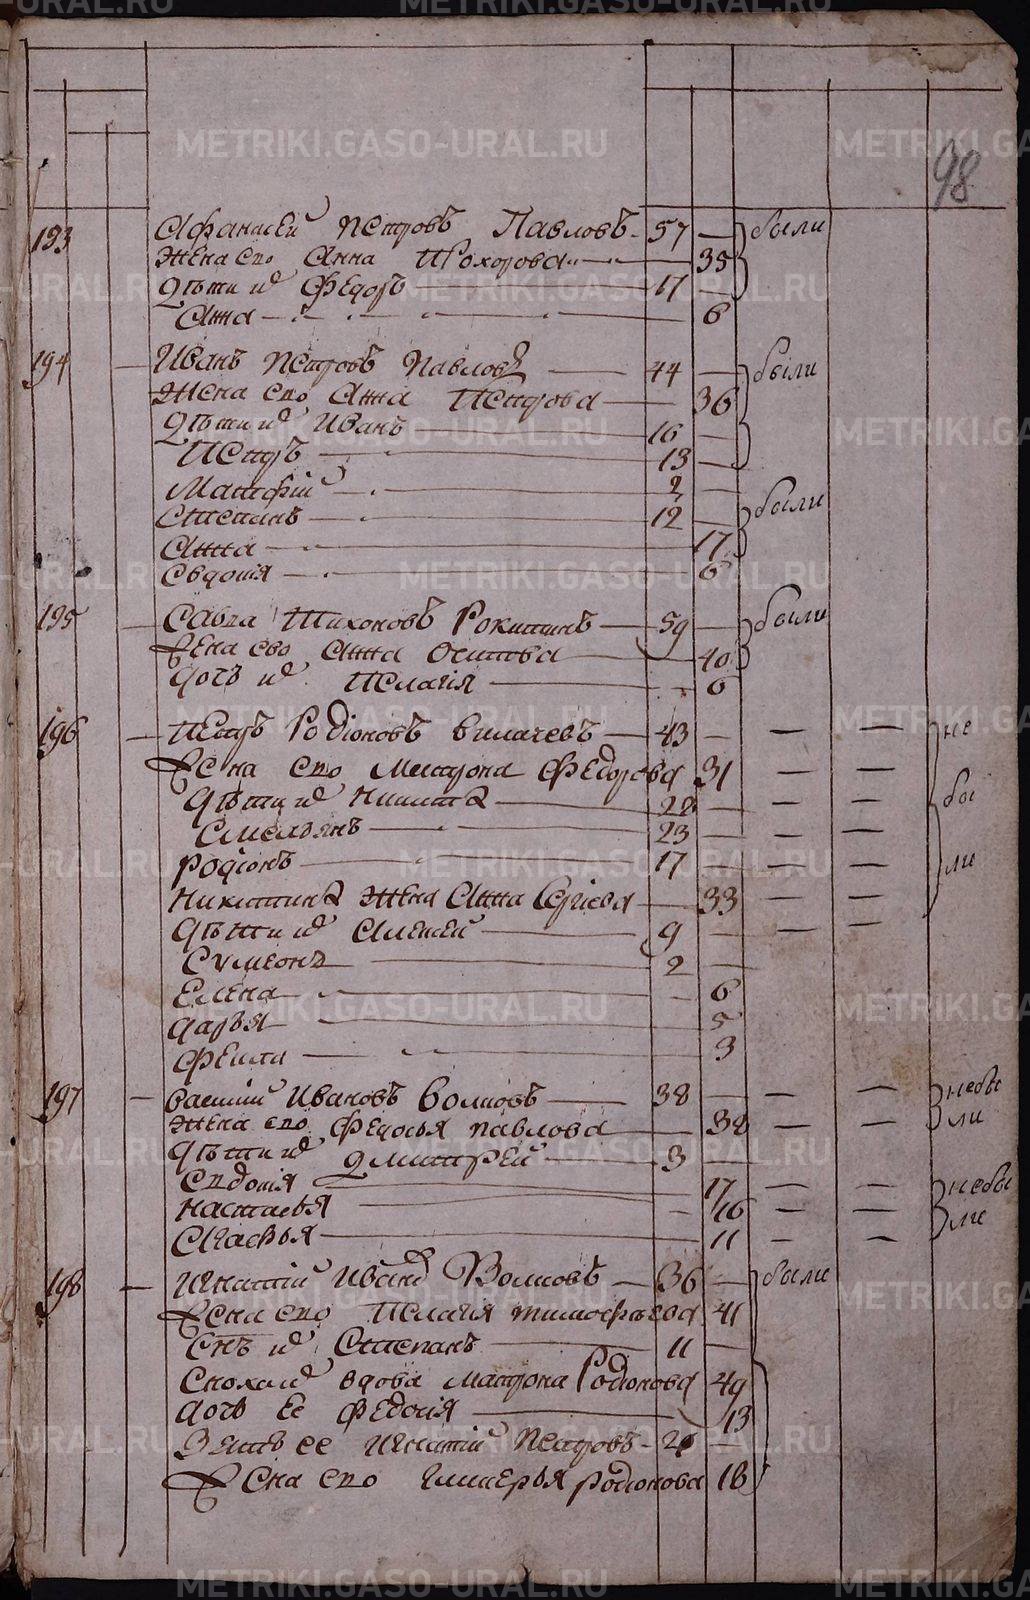 98
193 Афанасей Петровъ Павловъ 57 — были
Жена ево Анна Прохорова — 35
Дѣти ихъ Федоръ — 17 —
Анна — 6
194 — Иванъ Петровъ Павловъ — 44 — были
Жена ево Анна Петрова — 36
Дѣти ихъ Иванъ — 16 —
Петръ — 13 —
Матфій — 2 —
Степанъ — 12 — были
Анна — 17
Евдокія — 6
195 — Савва Тихоновъ — 59 — были
Жена ево Анна Осипова — 40
Дочь ихъ Пелагія — 6
196 — Петръ Родіоновъ — 43 — — — не
Жена ево Матрона Федорова 31 — —
Дѣти ихъ Никита — 22 — — — бы
Емельянъ — 23 — — —
Родіонъ — 17 — — — ли
Никитина жена Анна Сергіева — 33 — —
Дѣти ихъ Алексей — 9 — —
Сумеонъ — 2 —
Елена — 6
Дарья — 5
Фекла — 3
197 — Василій Ивановъ Волковъ — 38 — — — небы
Жена ево Федосья Павлова — 38 — — ли
Дѣти ихъ Дмитрей — 3 —
Евдокія — 17 — — небы
Настасья — 16 — — ли
Агафья — 11 — —
198 — Игнатій Иванов Волковъ — 36 — были
Жена ево Пелагія Тимофѣева 41
Снъ ихъ Степанъ — 11 —
Сноха ихъ вдова Матрона Родионова 49
Дочь Ее Федосія — 13
Зять ее Игнатій Петровъ — 21 —
Жена ево Гликерья Родионова 18
METRIKI.GASO-URAL.RU